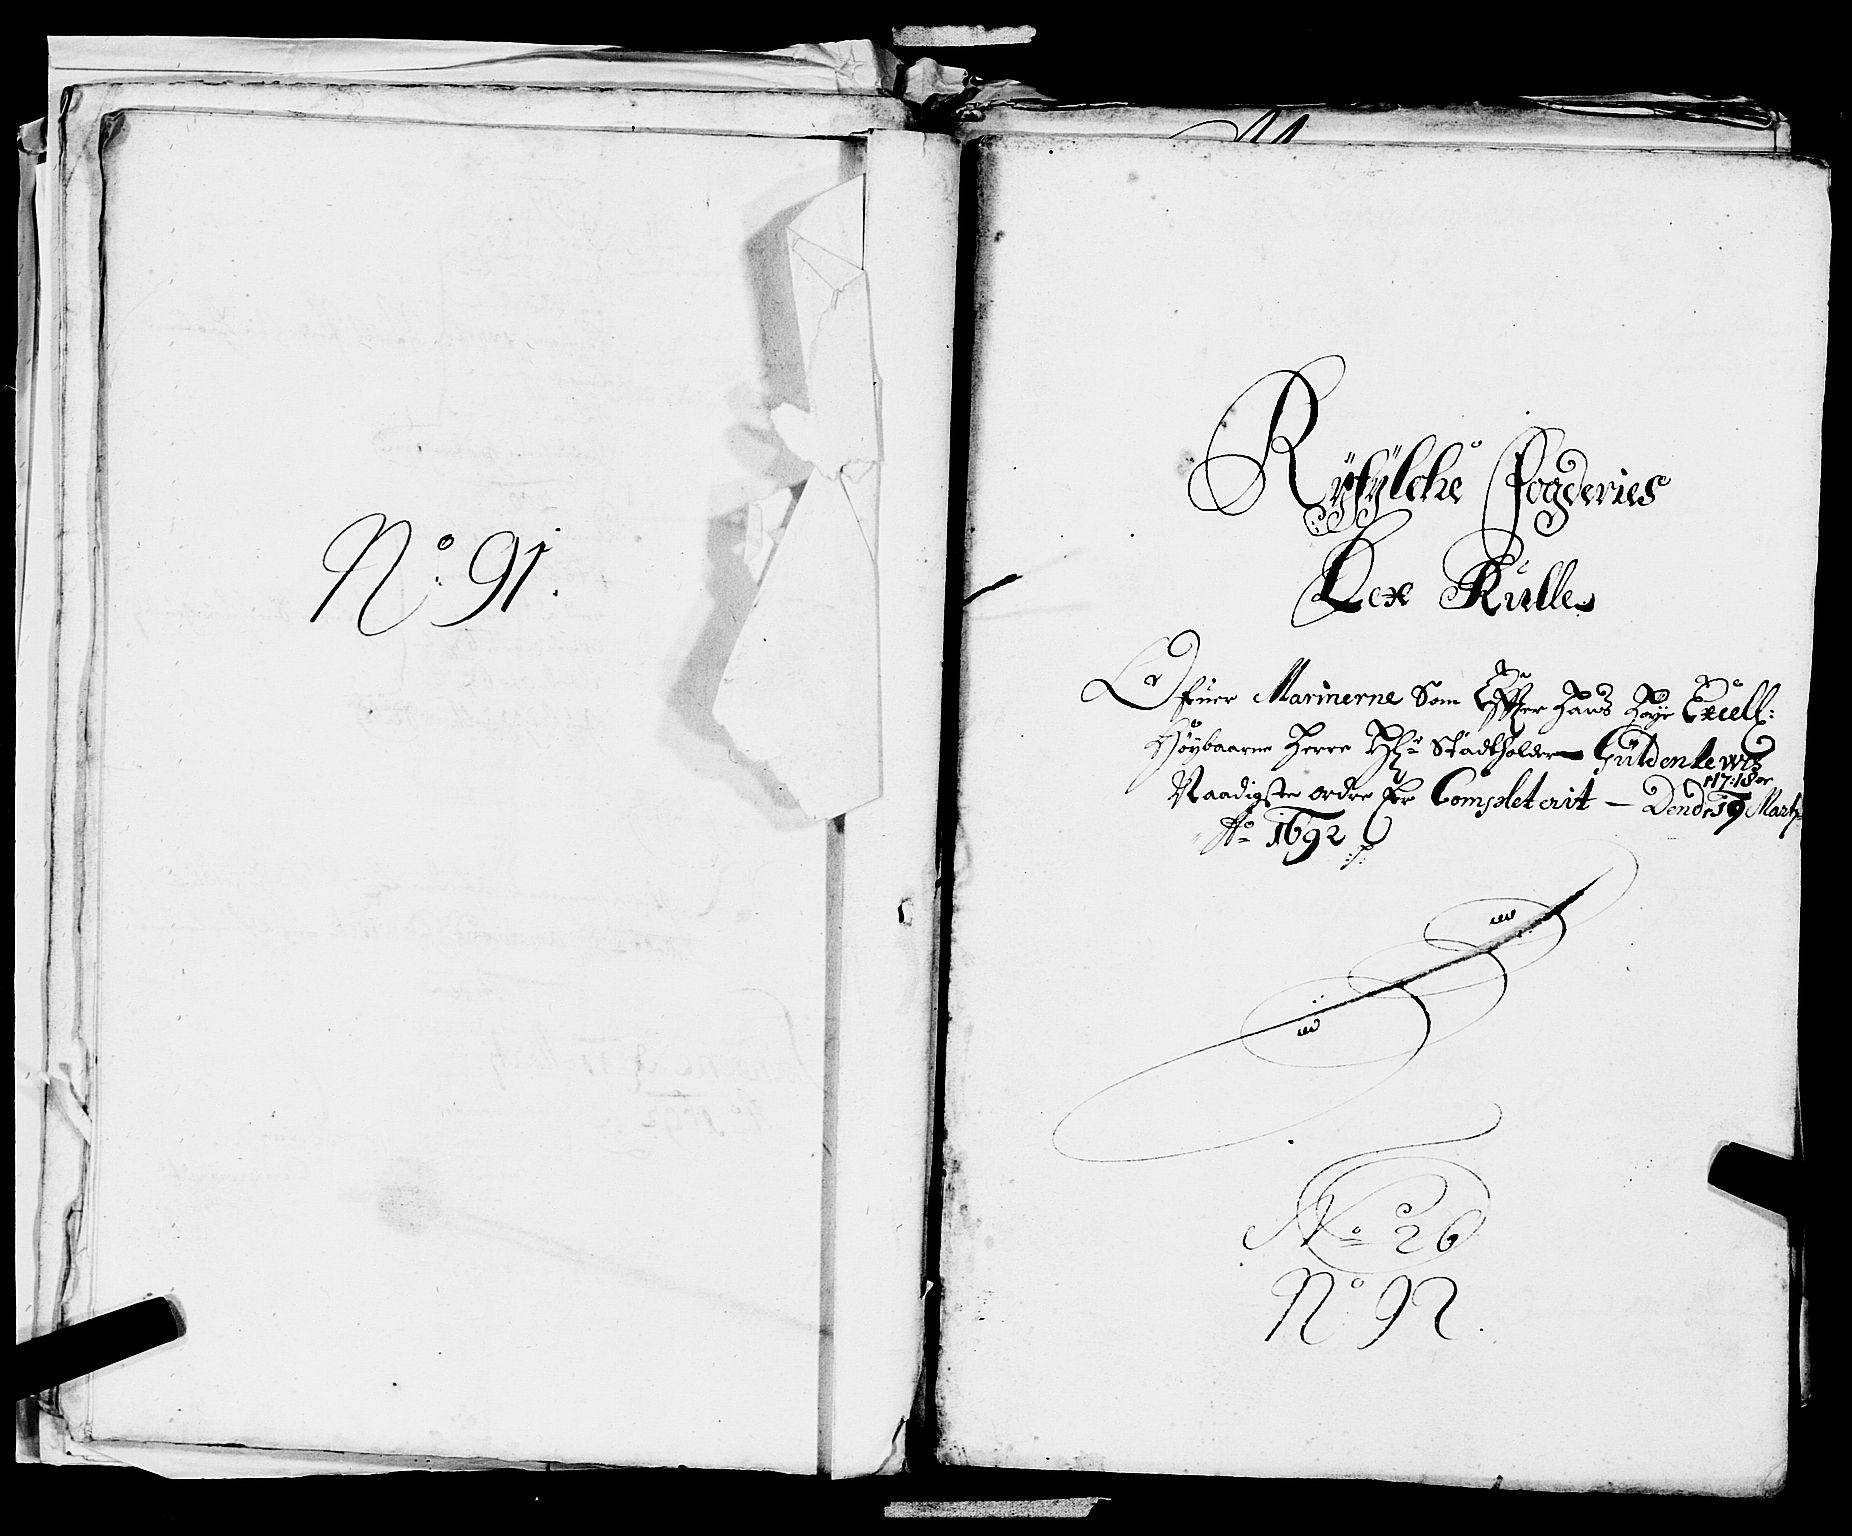 No: 91.
Rÿfÿlche Fogderies
Lex Rulle
Ofuer Marinerne Som Effter Hans Høye Excell:
Høybaarne Herre Hr Stadtholder Güldenlewes
Naadigste ordre er Completerit — Dend 19 Marty
17: 18 or
Ao 1692
No 26
No 92.